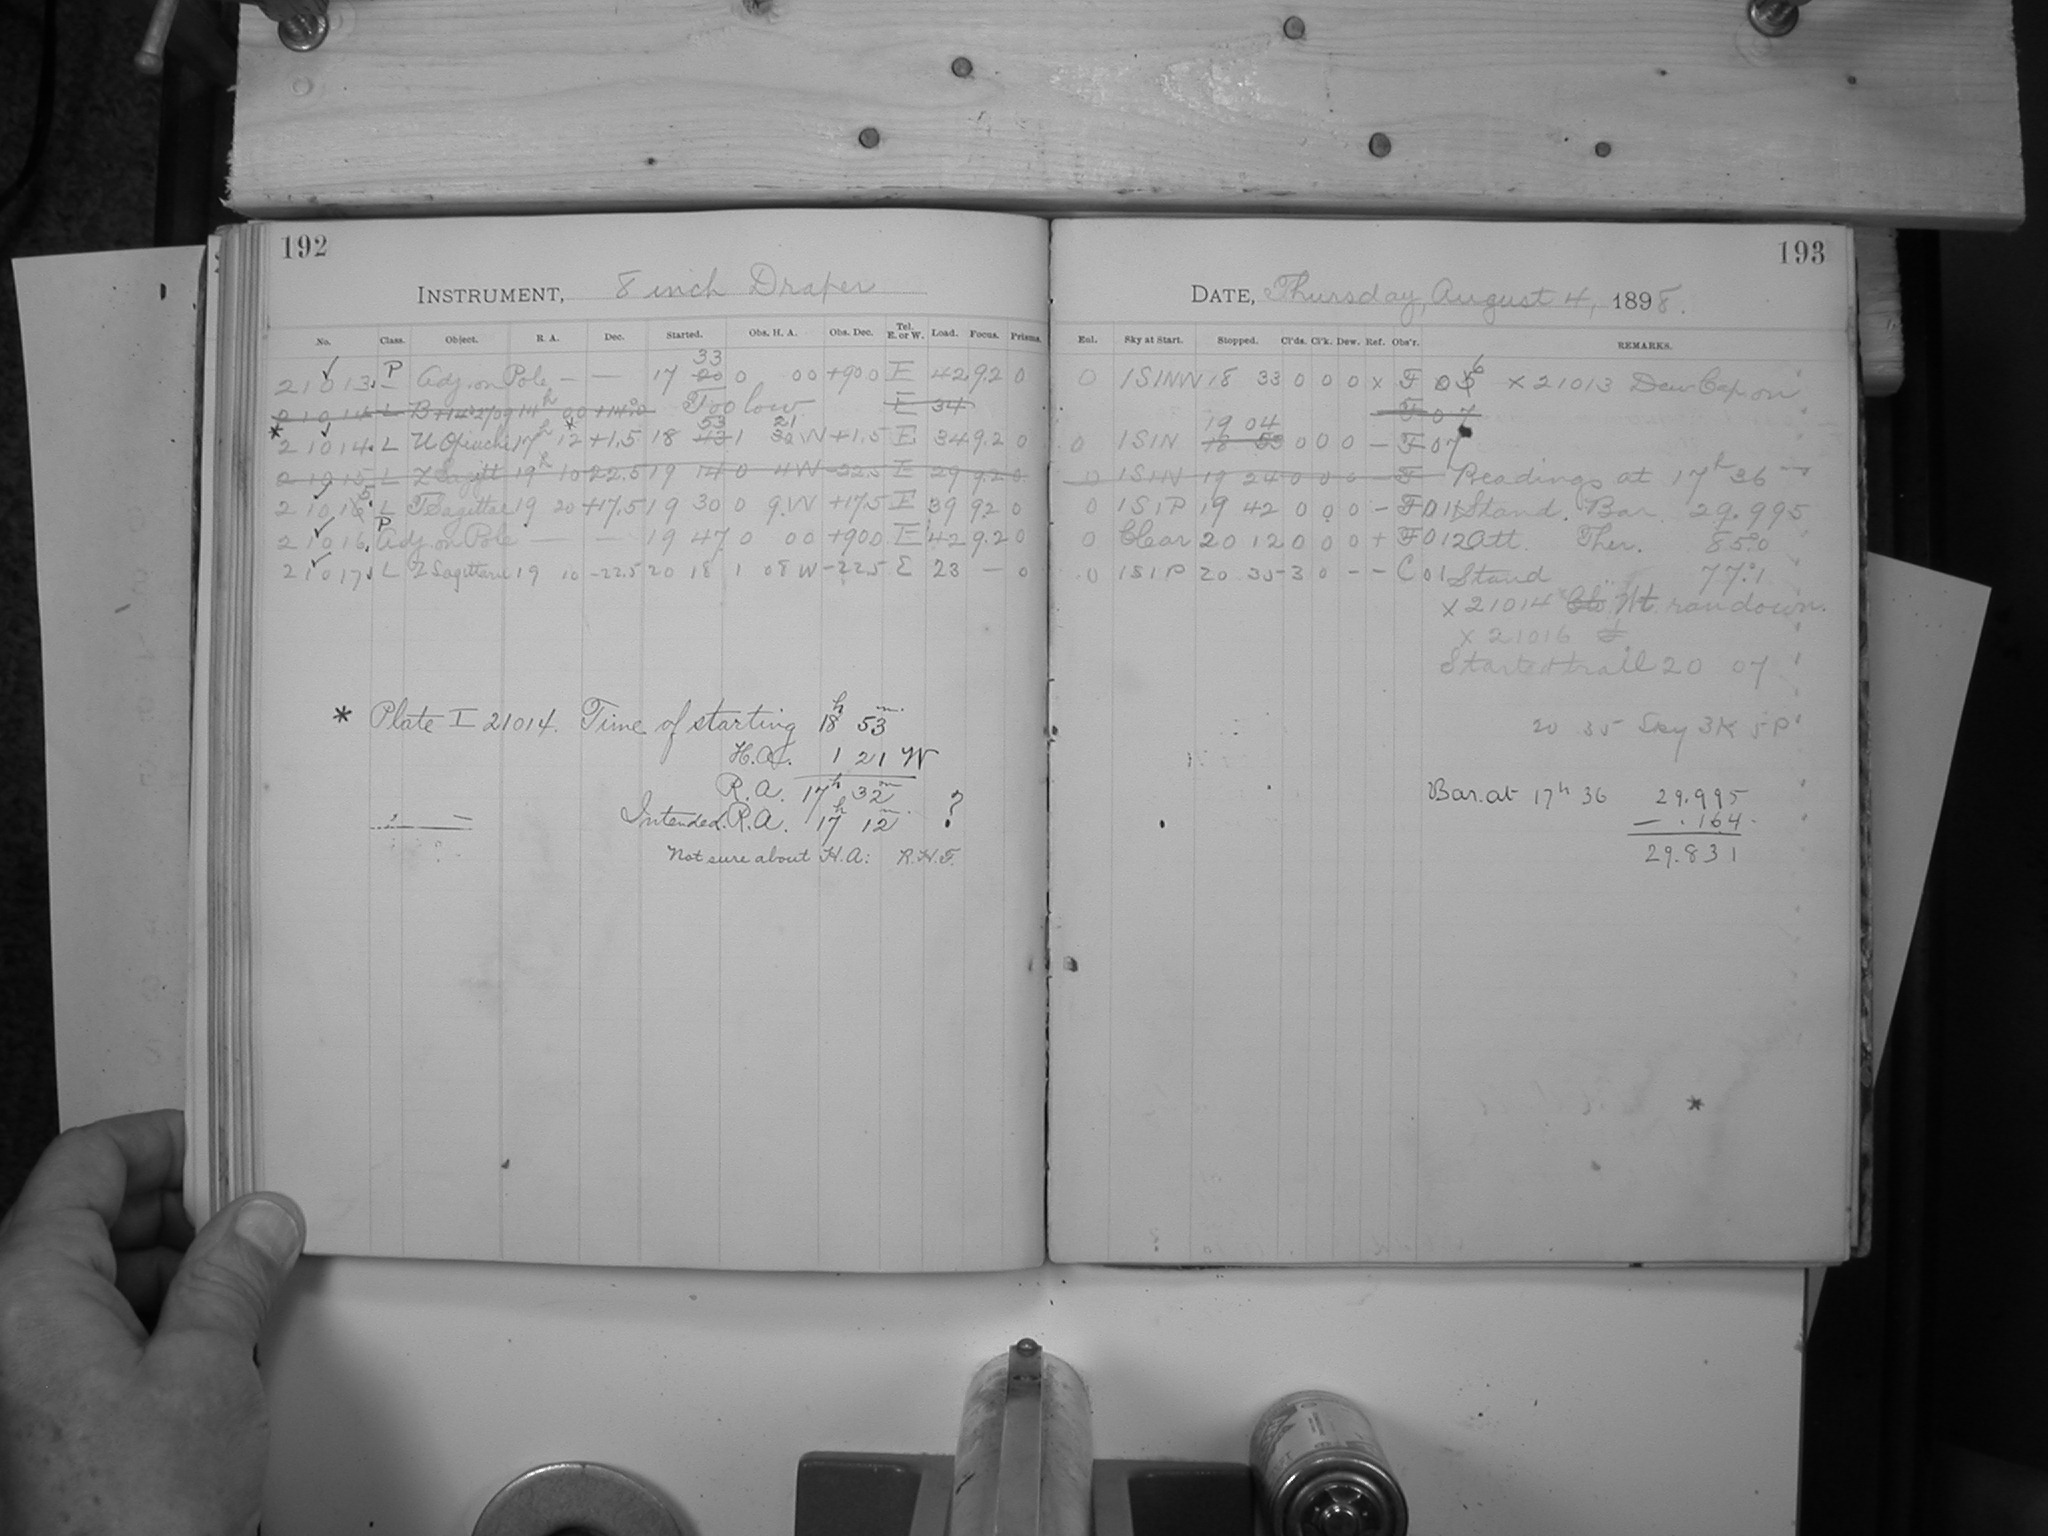 192
INSTRUMENT, 8 inch Draper
No. Class. Object. R. A. Dec. Started. Obs. H. A. Obs. Dec. Tel. E. or W. Load. Focus. Prisms.
33
21013. P Adj. on Pole — — 17 20 0 00 +90 0 E 42 9.2 0
21014 L 14h 00 Too low E 34
53 21
* 21014. L U Ophiuchi 17h 12* +1.5 18 43 1 32 W +1.5 E 34 9.2 0
21015 L Z Sagitt 19h 10 -22.5 19 14 0 4W -22.5 E 29 9.2 0
5
21016. L T Sagittae 19 20 +17.5 19 30 0 9.W +17.5 E 39 9.2 0
P
21016. Adj. on Pole — — 19 47 0 00 +90 0 E 42 9.2 0
21017. L Z Sagittarii 19 10 -22.5 20 18 1 08 W -22.5 E 23 — 0
* Plate I 21014. Time of starting 18h 53m.
H.A. 1 21 W
R.A. 17h 32m
Intended R.A. 17h 12m. ?
Not sure about H.A: R.H.F.
193
DATE, Thursday, August 4, 1898.
Enl. Sky at Start. Stopped. Cl'ds. Cl'k. Dew. Ref. Obs'r. REMARKS.
6
0 1S1NW 18 33 0 0 0 x F 05 x 21013 Dew Cap on
F 07
19 04
0 1S1N 18 53 0 0 0 – F 07
0 1S1N 19 24 0 0 0 – F Readings at 17h 36m
0 1S1P 19 42 0 0 0 – F 011 Stand. Bar. 29.995
0 Clear 20 12 0 0 0 + F 012 Att. Ther. 85.0
0 1S1P 20 35 3 0 – – C 01 Stand 77.1
x 21014 Wt ran down.
x 21016
Started trail 20 07
20 35 Sky 3K 5P
Bar. at 17h 36 29.995
— .164.
29.831
*